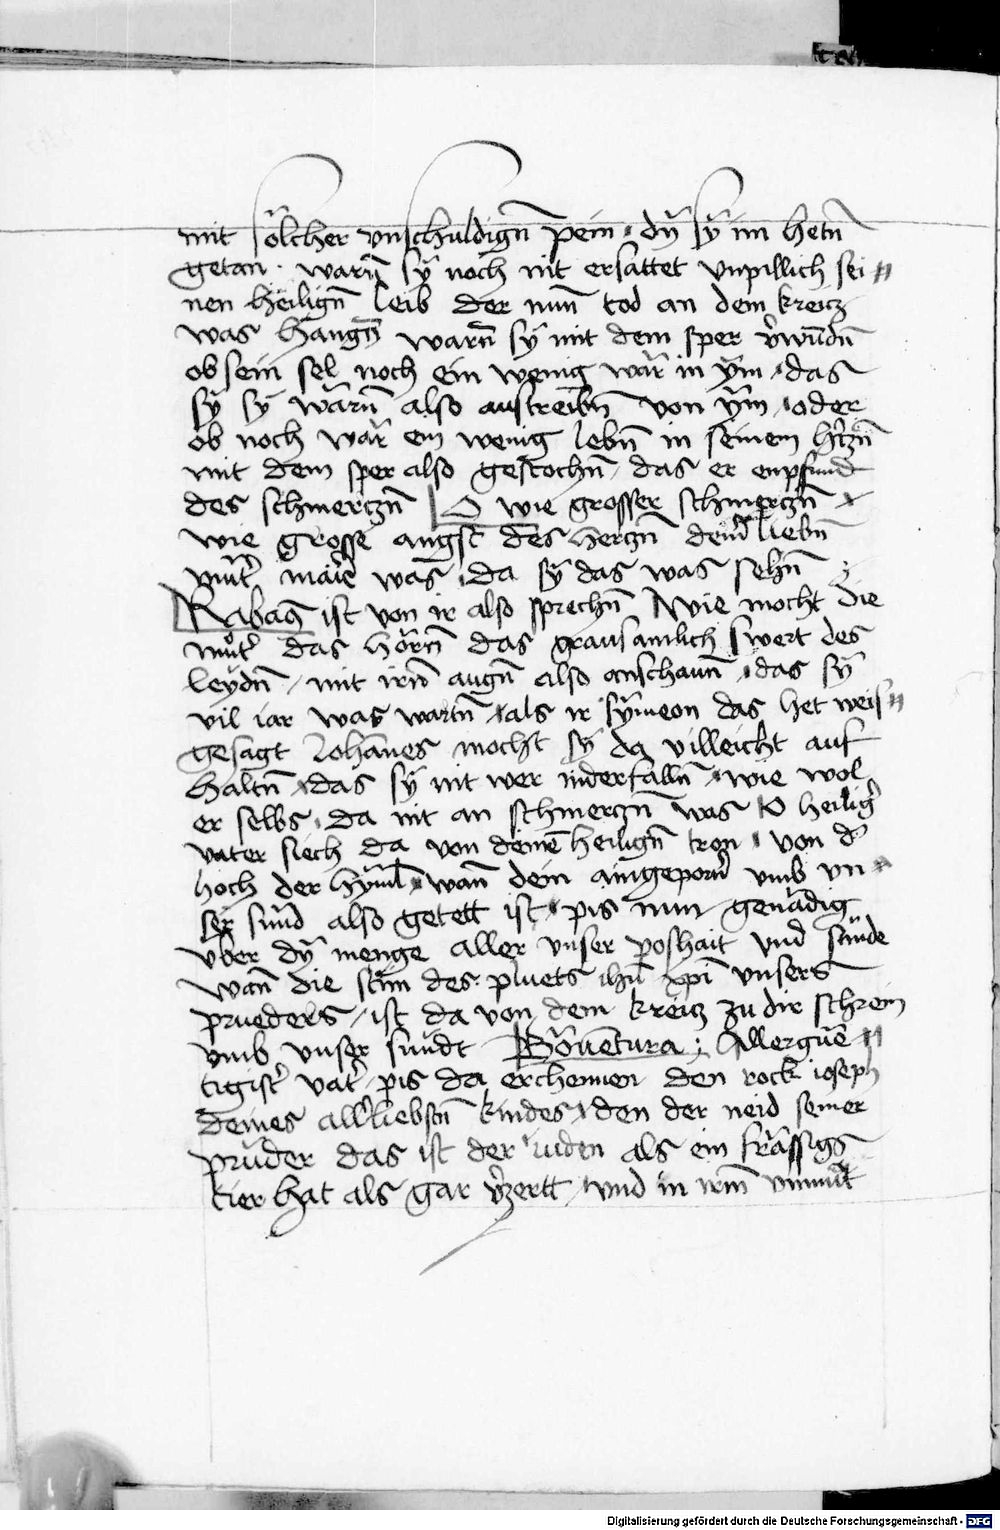 mit sölcher vnschuldign̄ pein · dy̆ sy̆ im hetn̄
getan · warn̄ sy̆ noch nit ersattet vnpillich sei〃
nen heilign̄ leib der nun tod an dem kreitz
was hangn̄ warn̄ sy̆ mit dem sper v̓wūdn̄
ob sein sel noch ein wenig wär in ÿm · das
sÿ sÿ wärn̄ also austreibn̄ von ÿm · oder
ob noch wär ein wenig lebn̄ in seinem hʼtzn̄
mit dem sper also gestochn̄ · das er enpfund
des schmertzn̄ O wie grosser schmertzn̄
wie grosse angst des hertzn̄ deinʼ liebn̄
mutʼ was · da sÿ das was sehn̄
ist von ir also sprechn̄ Wie mocht die
mütʼ das hörn̄ das grausamlich swert des
leÿdn̄ / mit irn̄ augn̄ also anschaun̄ · das sÿ
vil iar was wartn̄ · als ir sÿmeon das het weis〃
gesagt Johānes mocht sÿ da villeicht auf
haltn̄ · das sÿ nit wer niderfalln̄ · wie wol
er selbs · da nit an schmertzn̄ was O heiligʼ
vater siech da von deinē heilign̄ tron · von dʼ
höch der hÿml · wan̄ dein aingeporn̄ vmb vn
ser sünd also getett ist · pis nun genädig
vber dÿ menge aller vnser poshait vnd sünde
wan̄ die stim̄ des pluets ihū xpi vnsers
prueders / ist da von dem kreitz zu dir schrein
vmb vnser sündt Bōuentura : Allergüē〃
tigistʼ vatʼ · pis da erchennen den rock ioseph
deines allʼliebstn̄ kindes · den der neid seiner
prüder das ist der iuden als ein frässigs
tier hat als gar v̓zertt / vnd in irm̄